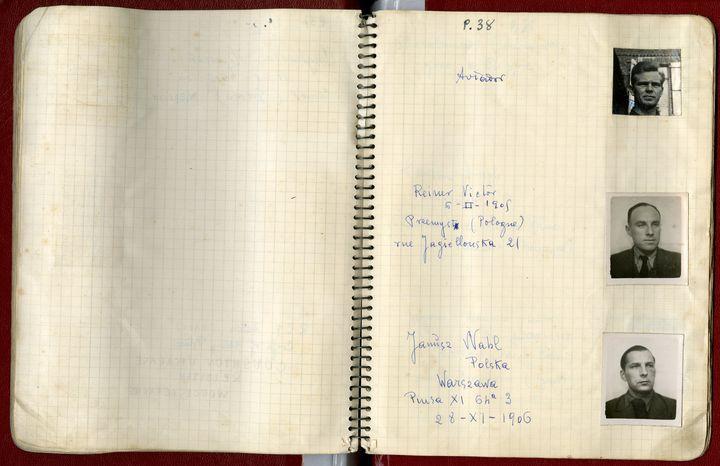 P. 38
Aviador
Reiner Victor
6-II-1905
Przemysl (Pologne)
rue Jagiellonska 21
Janusz Nabl
Polska
Warszawa
Prusa XI 6
28-XI-1906